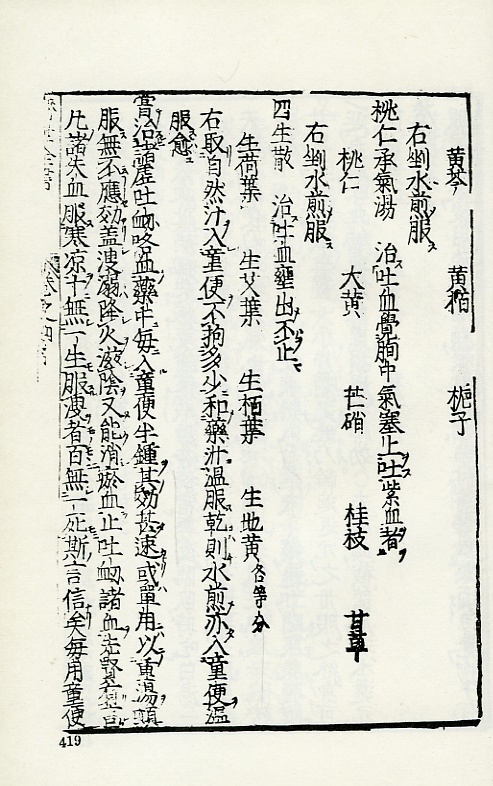 黄芩　黄栢　梔子
右剉水煎服ス
桃仁承氣湯　治吐血覺胸中氣塞上吐紫血者ヲ
桃仁　大黄　芒硝　桂枝　甘草
右剉水煎服ス
四生散　治吐血壅出不止
生荷葉　生艾葉　生栢葉　生地黄各等分
右取自然汁入童便不拘多少和藥汁温服乾則水煎亦入童便温
服愈
嘗治吐血咯血藥中毎入童便半鍾其効甚速或單用以重湯頓
服無不應効盖溲溺降火滋陰又能消瘀血止吐衂諸血先賢有言
凡諸失血服寒凉十無一生服溲者百無一死斯言信矣毎用童便
419